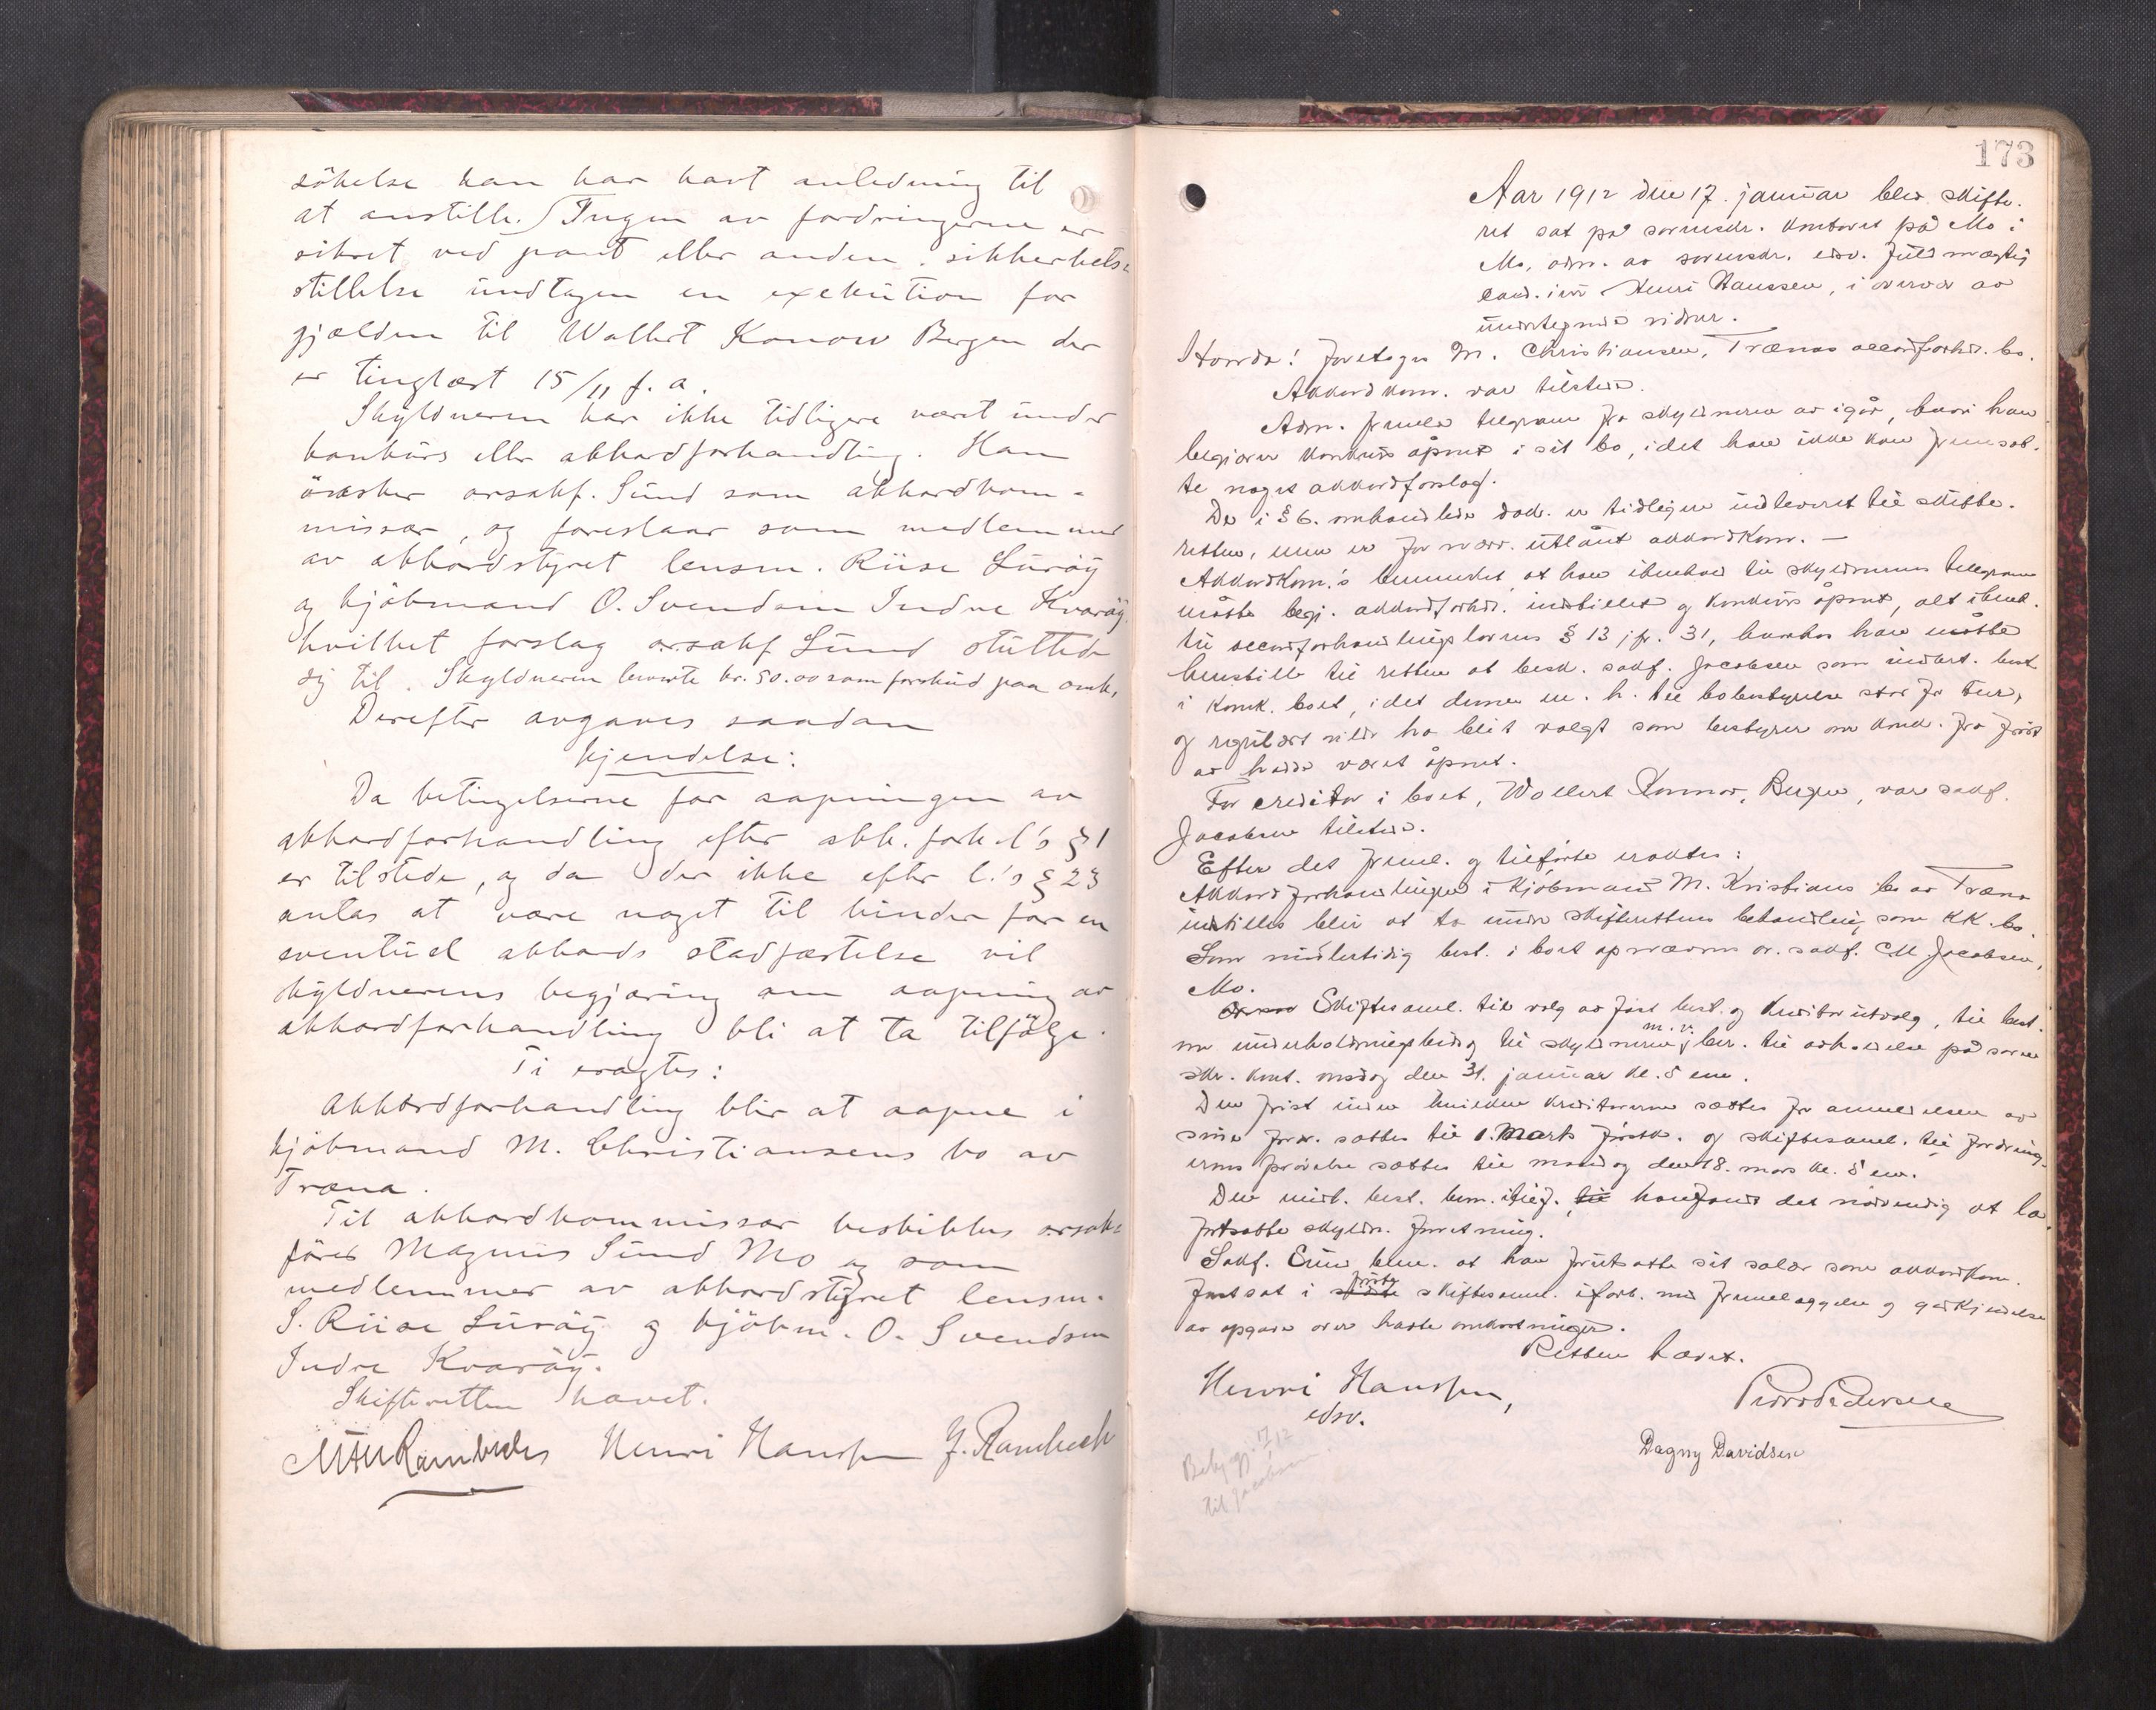 søkelse han har havt anledning til
at anstille. Ingen av fordringerne er
sikret ved pant eller anden sikkerhets-
stillelse undtagen en exekution for
gjælden til Wollert Konow Bergen der
er tinglæst 15/11 f. a.
Skyldneren har ikke tidligere været under
konkurs eller akkordforhandling. Han
ønsker orsakf. Sund som akkordkom-
missær, og foreslaar som medlemmer
av akkordstyret lensm. Riise Lurøy
og kjøbmand O. Svendsen Indre Kvarøy,
hvilket forslag orsakf Sund støttede
sig til. Skyldneren leverte kr. 50.00 som forskud paa omk.
Derefter avgaves saadan
kjendelse:
Da betingelserne for aapningen av
akkordforhandling efter akk. forh. l's § 1
er tilstede, og da der ikke efter l.'s § 23
antas at være noget til hinder for en
eventuel akkords stadfæstelse vil
skyldnerens begjæring om aapning av
akkordforhandling bli at ta tilfølge.
Ti eragtes:
Akkordforhandling blir at aapne i
kjøbmand M. Christiansens bo av
Træna.
Til akkordkommissær beskikkes orsak-
fører Magnus Sund Mo og som
medlemmer av akkordstyret lensm.
S. Riise Lurøy og kjøbm. O. Svendsen
Indre Kvarøy.
Skifteretten hævet.
Henri Hanssen J. Rambech
173
Aar 1912 den 17. januar blev skifte-
ret sat på sorenskr. kontoret på Mo i
Mo, adm. av sorenskr. edsv. fuldmægtig
cand. jur Henri Hanssen, i overvær av
undertegnede vidner.
Hvorda! Foretoges M. Christiansen, Trænas accordforhdl. bo.
Akkordkom. var tilstede.
Adm. freml. telegram fra skyldneren av igår, hvori han
begjærer konkurs åpnet i sit bo, idet han ikke kan fremsæt-
te noget akkordforslag.
De i § 6. omhandlede dok. er tidligere indleveret til skifte-
retten, men er for nærv. utlånt akkordkom. —
Akkordkom.'s bemerket, at han i henhold til skyldnerens telegram
måtte begj. akkordforhdl. indstillet og konkurs åpnet, alt i henh.
til accordforhandlingslovens § 13 jfr. 31, hvorhos han måtte
henstille til retten at besk. sakf. Jacobsen som midlert. best.
i konk. boet, idet denne m. h. til bobestyrelse står for tur,
og regulært vilde ha blit valgt som bestyrer om konk. fra først
av hadde været åpnet.
For creditor i boet, Wollert Konow, Bergen, var sakf.
Jacobsen tilstede.
Efter det freml. og tilførte eraktes:
Akkordforhandlingen i Kjøbmand M. Kristians bo av Træna
indstilles blir at ta under skifterettens behandling som KK. bo.
Som midlertidig best. i boet opnævnes or. sakf. CM Jacobsen,
Mo.
Skiftesaml. til valg av fast best. og kreditorutvalg, til best.
m. v.
me underholdningsbidrag til skyldneren, ber. til avholdelse på soren
skr. kont. onsdag den 31. januar kl. 5 em.
Den frist inden hvilken kreditorerne sættes for anmeldelsen av
sine fordr. sættes til 1. Marts førstk. og skiftesaml. til fordring-
ernes prøvelse sættes til mandag den 18. mars kl. 5 em.
Den midl. best. bem. til han fandt det nødvendig at la
fortsætte skyldn. forretning.
Sakf. Sund bem. at han forutsatte sit salær som akkordkom.
første
fastsat i skiftesaml. i forb. med fremlæggelse og godkjendelse
av opgave over hadte omkostninger.
Retten hævet.
Henri Hanssen,
edsv.
Pedersen
Dagny Davidsen
17/1 12
til Jacobsen